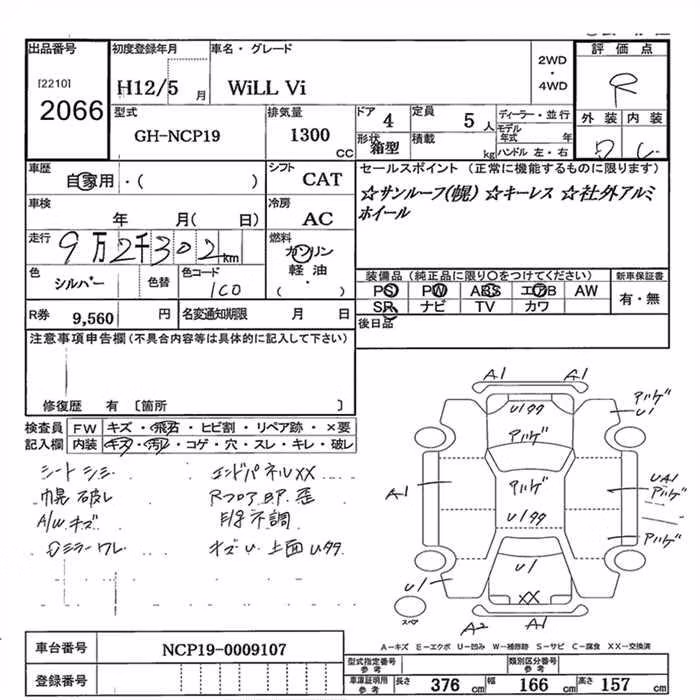 出品番号 初度登録年月 車名・グレード 2WD ・ 4WD 評価点
[2210] 2066 H12/5 月 WiLL Vi R
型式 GH-NCP19 排気量 1300 CC ドア 4 定員 5 人 ディーラー・並行 外装 内装
形状 箱型 積載 kg モデル年式 年 ハンドル 左・右 D C
車歴 自家用・( ) シフト CAT セールスポイント (正常に機能するものに限ります)
車検 年 月( 日) 冷房 AC ☆サンルーフ(幌) ☆キーレス ☆社外アルミ
ホイール
走行 9万2千302km 燃料 ガソリン 軽油 ( ・ )
色 シルバー 色替 色コード 1C0 装備品(純正品に限り○をつけてください) 新車保証書
PS PW ABS エアB AW 有・無
SR ナビ TV カワ
R券 9,560 円 名変通知期限 月 日 後日品
注意事項申告欄(不具合内容等は具体的に記入して下さい)
修復歴 有 〔箇所 〕
検査員 FW キズ・飛石・ヒビ割・リペア跡・×要
記入欄 内装 キズ・汚れ・コゲ・穴・スレ・キレ・破レ
シートシミ エンドパネルXX
幌破レ Rフロア凹 歪
A/Wキズ 不調
Dミラーワレ キズU 上面Uタタ
A1 A1
Uタタ アルゲ U1
アルゲ
A1 アルゲ UA1 アルゲ
Uタタ アルゲ
U1 U1
XX
スペア A2 A1
A-キズ E-エクボ U-凹み W-補修跡 S-サビ C-腐食 XX-交換済
車台番号 NCP19-0009107
登録番号 型式指定番号 参考 類別区分番号 参考
車庫証明用 参考 長さ 376 cm 幅 166 cm 高さ 157 cm